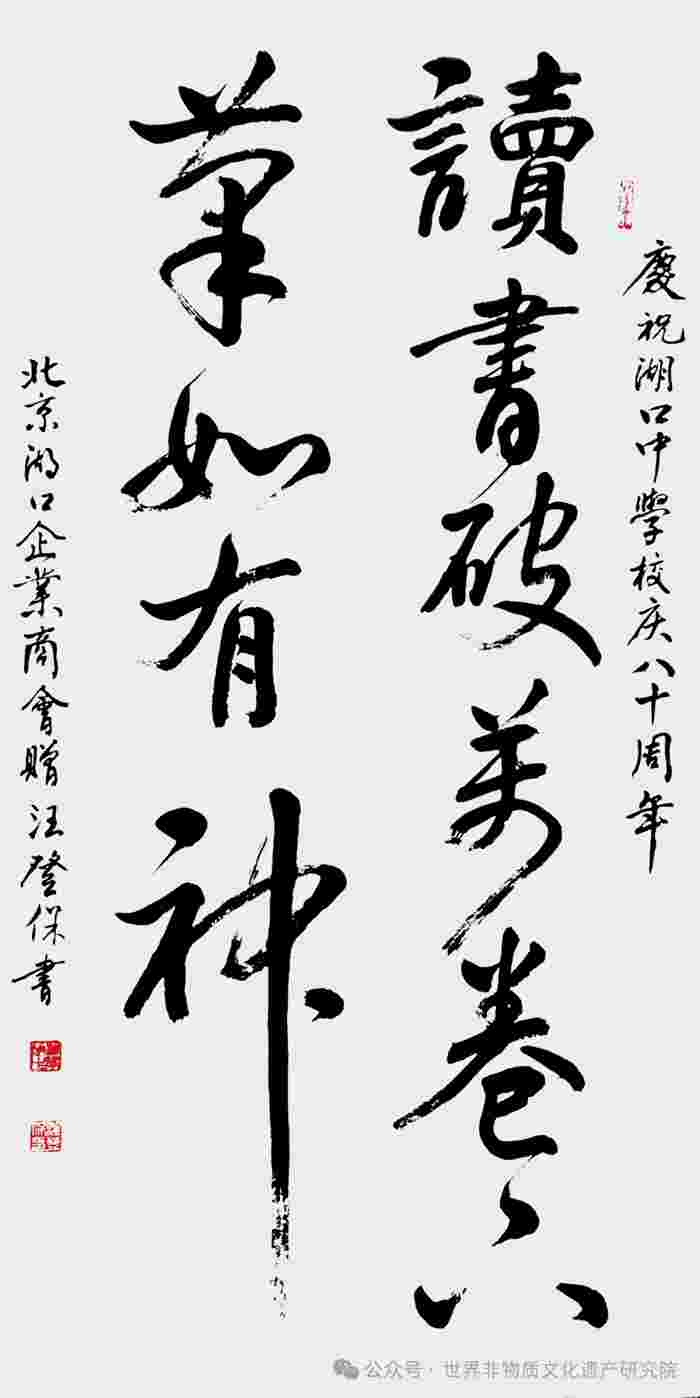 慶祝湖口中學校庆八十周年
讀書破萬卷下
筆如有神
北京湖口企業商會贈汪登保書
公众号·世界非物质文化遗产研究院